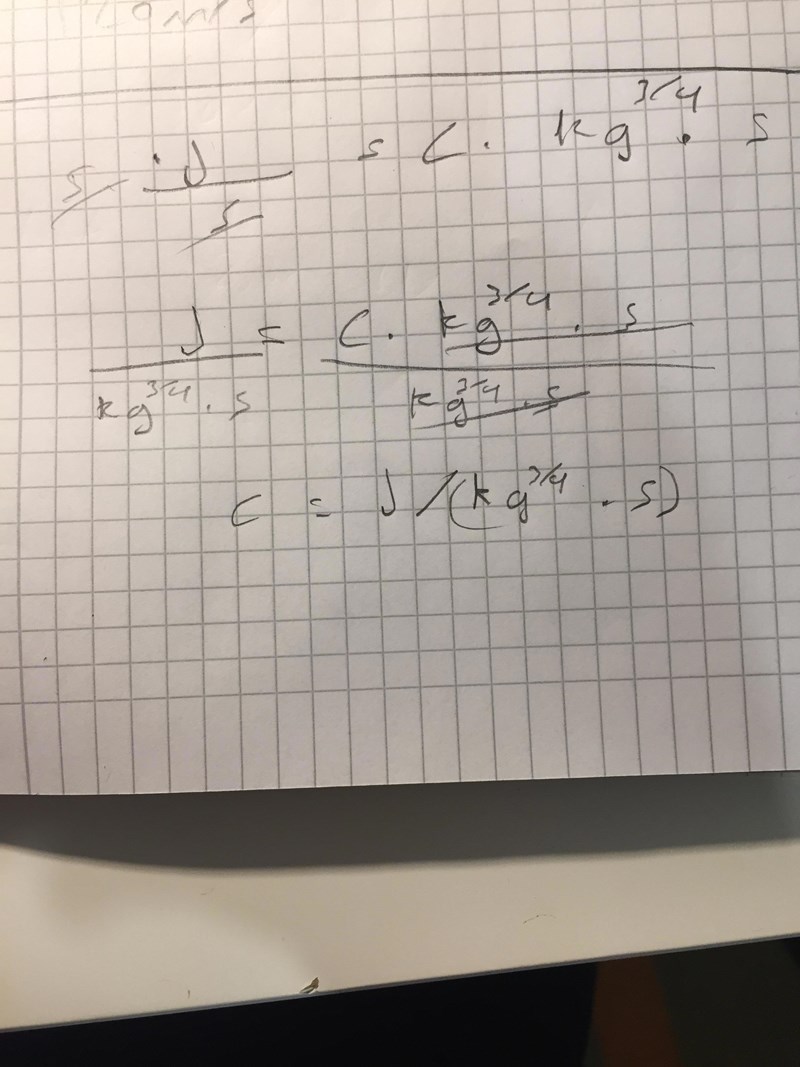 s · J/s = C · kg^3/4 · s
J/(kg^3/4 · s) = C · kg^3/4 · s/(kg^3/4 · s)
C = J/(kg^3/4 · s)